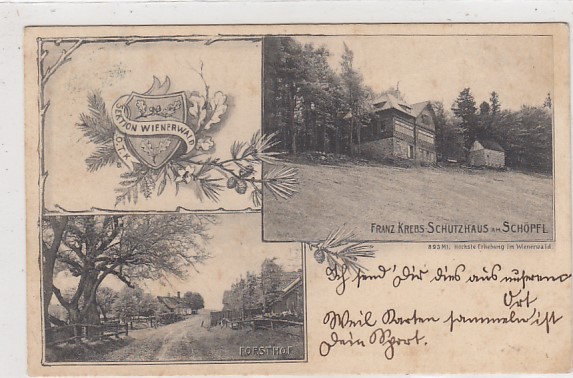 SEKTION WIENERWALD
Ö.T.K.
FRANZ KREBS-SCHUTZHAUS AM SCHÖPFL
893 Mt. höchste Erhebung im Wienerwald
FORSTHOF
Ich send' Dir dies aus unsrem
Ort
Weil Karten sammeln ist
Dein Sport.